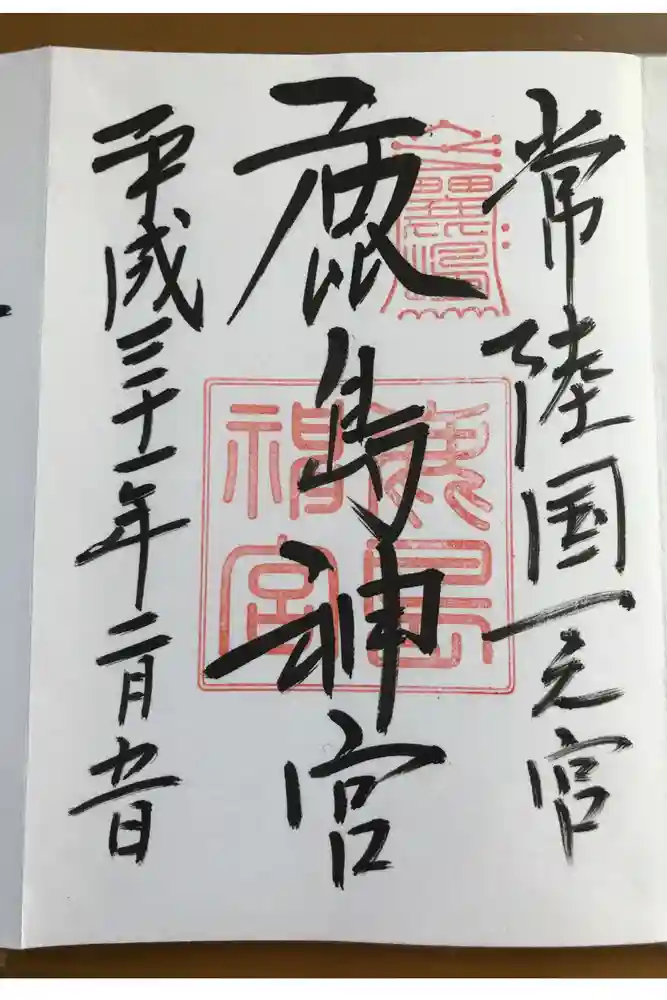 常陸国一之宮
鹿島神宮
平成三十一年二月九日
鹿島
神宮